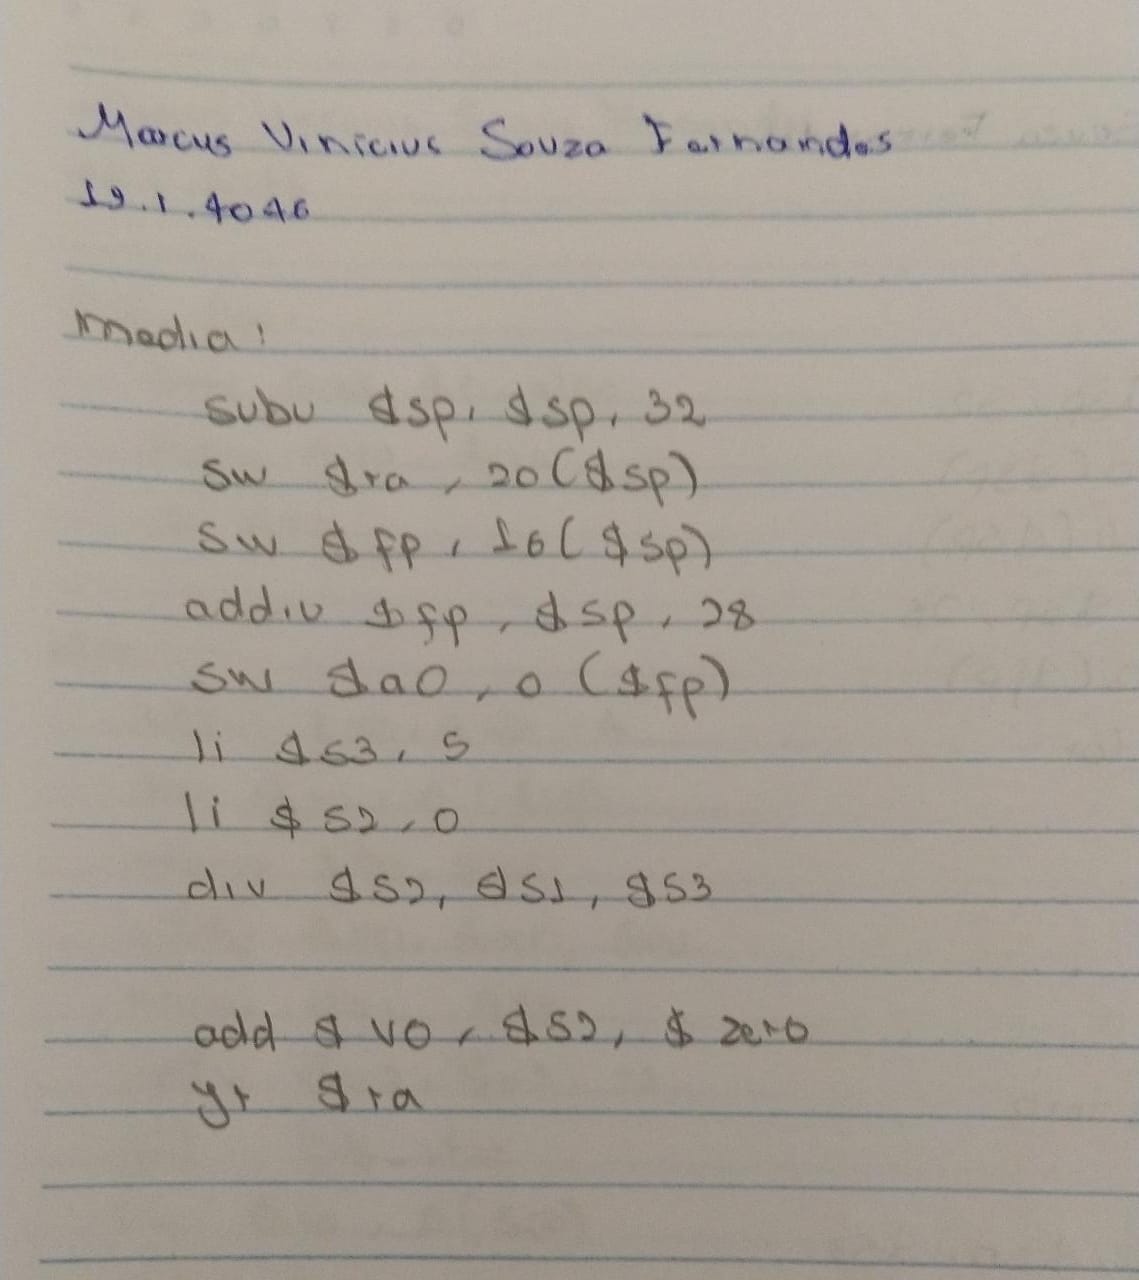 Marcus Vinicius Souza Fernandes
19.1.4046
media:
subu $sp, $sp, 32
sw $ra, 20($sp)
sw $fp, 16($sp)
addiu $fp, $sp, 28
sw $a0, 0($fp)
li $s3, 5
li $s2, 0
div $s2, $s1, $s3
add $v0, $s2, $zero
jr $ra